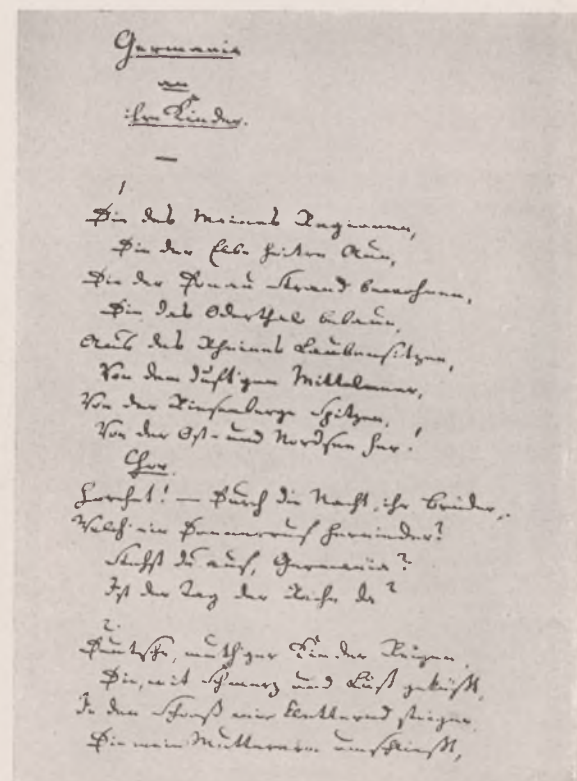 Germania
an
ihre Kinder.
1
Die des Maines Regionen,
Die der Elbe heitre Aun,
Die der Donau Strand bewohnen,
Die das Oderthal bebaun,
Aus des Rheines Laubensitzen,
Von dem duft'gen Mittelmeer,
Von der Riesenberge Spitzen,
Von der Ost- und Nordsee her!
Chor.
Horchet! — Durch die Nacht, ihr Brüder,
Welch ein Donnerruf hernieder?
Stehst du auf, Germania?
Ist der Tag der Rache da?
2.
Deutsche, muthger Kinder Reigen,
Die, mit Schmerz und Lust geküßt,
In den Schooß mir kletternd steigen,
Die mein Mutterarm umschließt,